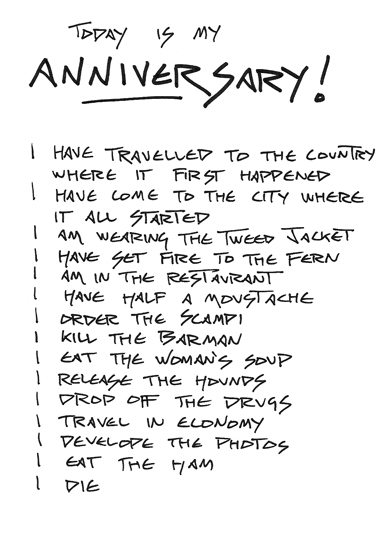 TODAY IS MY
ANNIVERSARY!
I HAVE TRAVELLED TO THE COUNTRY
WHERE IT FIRST HAPPENED
I HAVE COME TO THE CITY WHERE
IT ALL STARTED
I AM WEARING THE TWEED JACKET
I HAVE SET FIRE TO THE FERN
I AM IN THE RESTAURANT
I HAVE HALF A MOUSTACHE
I ORDER THE SCAMPI
I KILL THE BARMAN
I EAT THE WOMAN'S SOUP
I RELEASE THE HOUNDS
I DROP OFF THE DRUGS
I TRAVEL IN ECONOMY
I DEVELOPE THE PHOTOS
I EAT THE HAM
I DIE